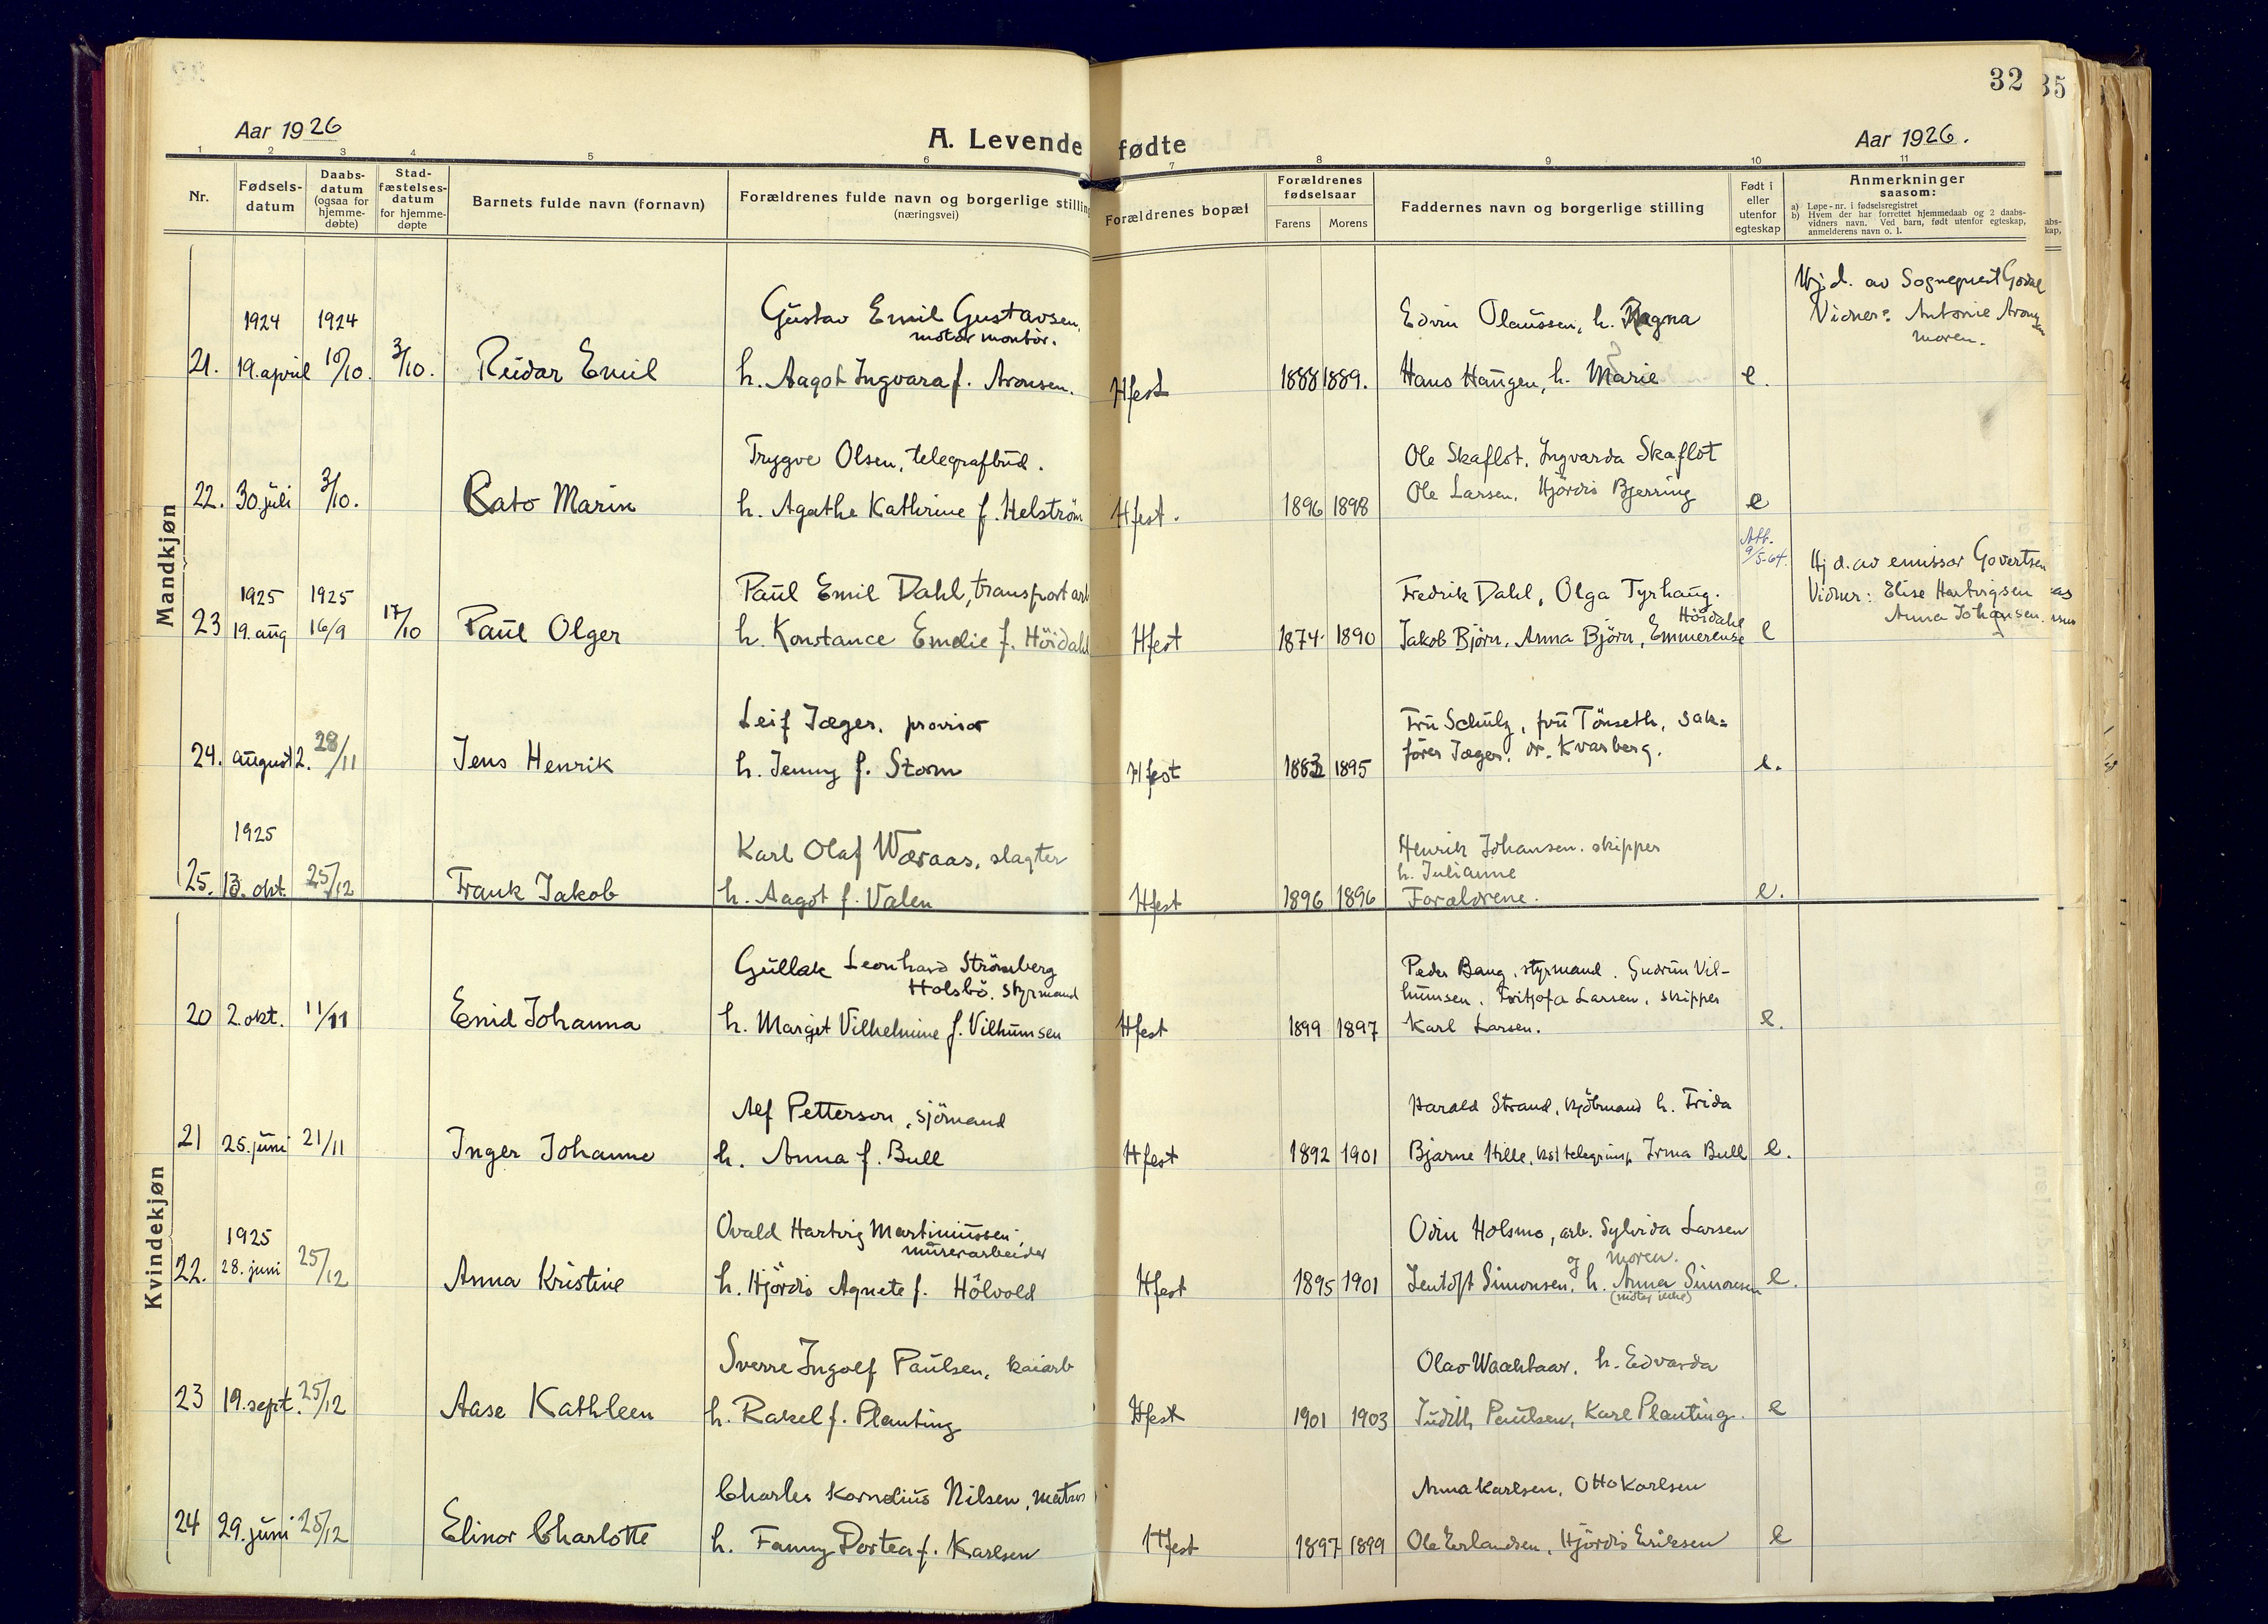 32
35
Aar 1926
A. Levende fødte
Aar 1926.
1 2 3 4 5 6 7 8 9 10 11
Nr.
Fødsels-
datum
Daabs-
datum
(ogsaa for
hjemme-
døbte)
Stad-
fæstelses-
datum
for hjemme-
døpte
Barnets fulde navn (fornavn)
Forældrenes fulde navn og borgerlige stilling
(næringsvei)
Forældrenes bopæl
Forældrenes
fødselsaar
Farens
Morens
Faddernes navn og borgerlige stilling
Født i
eller
utenfor
egteskap
Anmerkninger
saasom:
a) Løpe-nr. i fødselsregistret
b) Hvem der har forrettet hjemmedaab og 2 daabs-
vidners navn. Ved barn, født utenfor egteskap,
anmelderens navn o. l.
Mandkjøn
1924 1924
21. 19. april 10/10. 3/10. Reidar Emil
Gustav Emil Gustavsen,
motormontør.
h. Aagot Ingvara f. Aronsen.
Hfest 1888 1889.
Edvin Olaussen, h. Ragna
Hans Haugen, h. Marie
e.
Hj. d. av Sogneprest
Vidner: Antonie Aronsen
moren.
22. 30. juli 3/10. Cato Marin
Trygve Olsen, telegrafbud.
h. Agathe Kathrine f. Helström
Hfest. 1896 1898
Ole Skaflot, Ingvarda Skaflot
Ole Larsen, Hjördis Bjerring
e
Att.
9/5-64.
1925 1925
23 19. aug 16/9 17/10 Paul Olger
Paul Emil Dahl, transportarb
h. Konstance Emelie f. Höidahl
Hfest 1874 1890
Fredrik Dahl, Olga Tyrhaug.
Höidahl
Jakob Björn, Anna Björn, Emmerense
e
Hj d. av emissær Govertsen
Vidner: Elise Hartvigsen
Anna Johansen.
24. august 2. 28/11 Jens Henrik
Leif Jæger, provisor
h. Jenny f. Storm
Hfest 1895
Fru Schulz, fru Tönseth, sak=
fører Jæger, dr. Kvarberg.
e.
1925
25. 13. okt. 25/12 Frank Jakob
Karl Olaf Wæraas, slagter
h. Aagot f. Valen
Hfest 1896 1896
Henrik Johansen, skipper
h. Julianne
Forældrene.
e.
Kvindekjøn
20 2. okt. 11/11 Enid Johanna
Gullak Leonhard Strömberg
Holsbö, styrmand
h. Margit Vilhelmine f. Vilhumsen
Hfest 1899 1897
Peder Bang, styrmand. Gudrun Vil-
humsen, Fritjofa Larsen, skipper
Karl Larsen.
e.
21 25. juni 21/11 Inger Johanne
Alf Petterson, sjömand
h. Anna f. Bull
Hfest 1892 1901
Harald Strand, kjöbmand h. Frida
Bjarne Hille, Irma Bull
e.
1925
22. 28. juni 25/12 Anna Kristine
Ovald Hartvig Martiniussen,
murerarbeider
h. Hjördis Agnete f. Hölvold
Hfest 1895 1901
Odin Holsmo, arb. Sylvida Larsen
og moren.
Simonsen, h. Anna Simonsen
(möter ikke)
e.
23 19. sept. 25/12 Aase Kathleen
Sverre Ingolf Paulsen, kaiarb
h. Rakel f. Planting
Hfest 1901 1903
Olav Waaktaar, h. Edvarda
Judith Paulsen, Karl Planting.
e
24 29. juni 25/12 Elinor Charlotte
Charles Kornelius Nilsen, matros
h. Fanny Dortea f. Karlsen
Hfest 1897 1899
Anna Karlsen, Otto Karlsen
Ole Erlandsen, Hjördis Eriksen
e